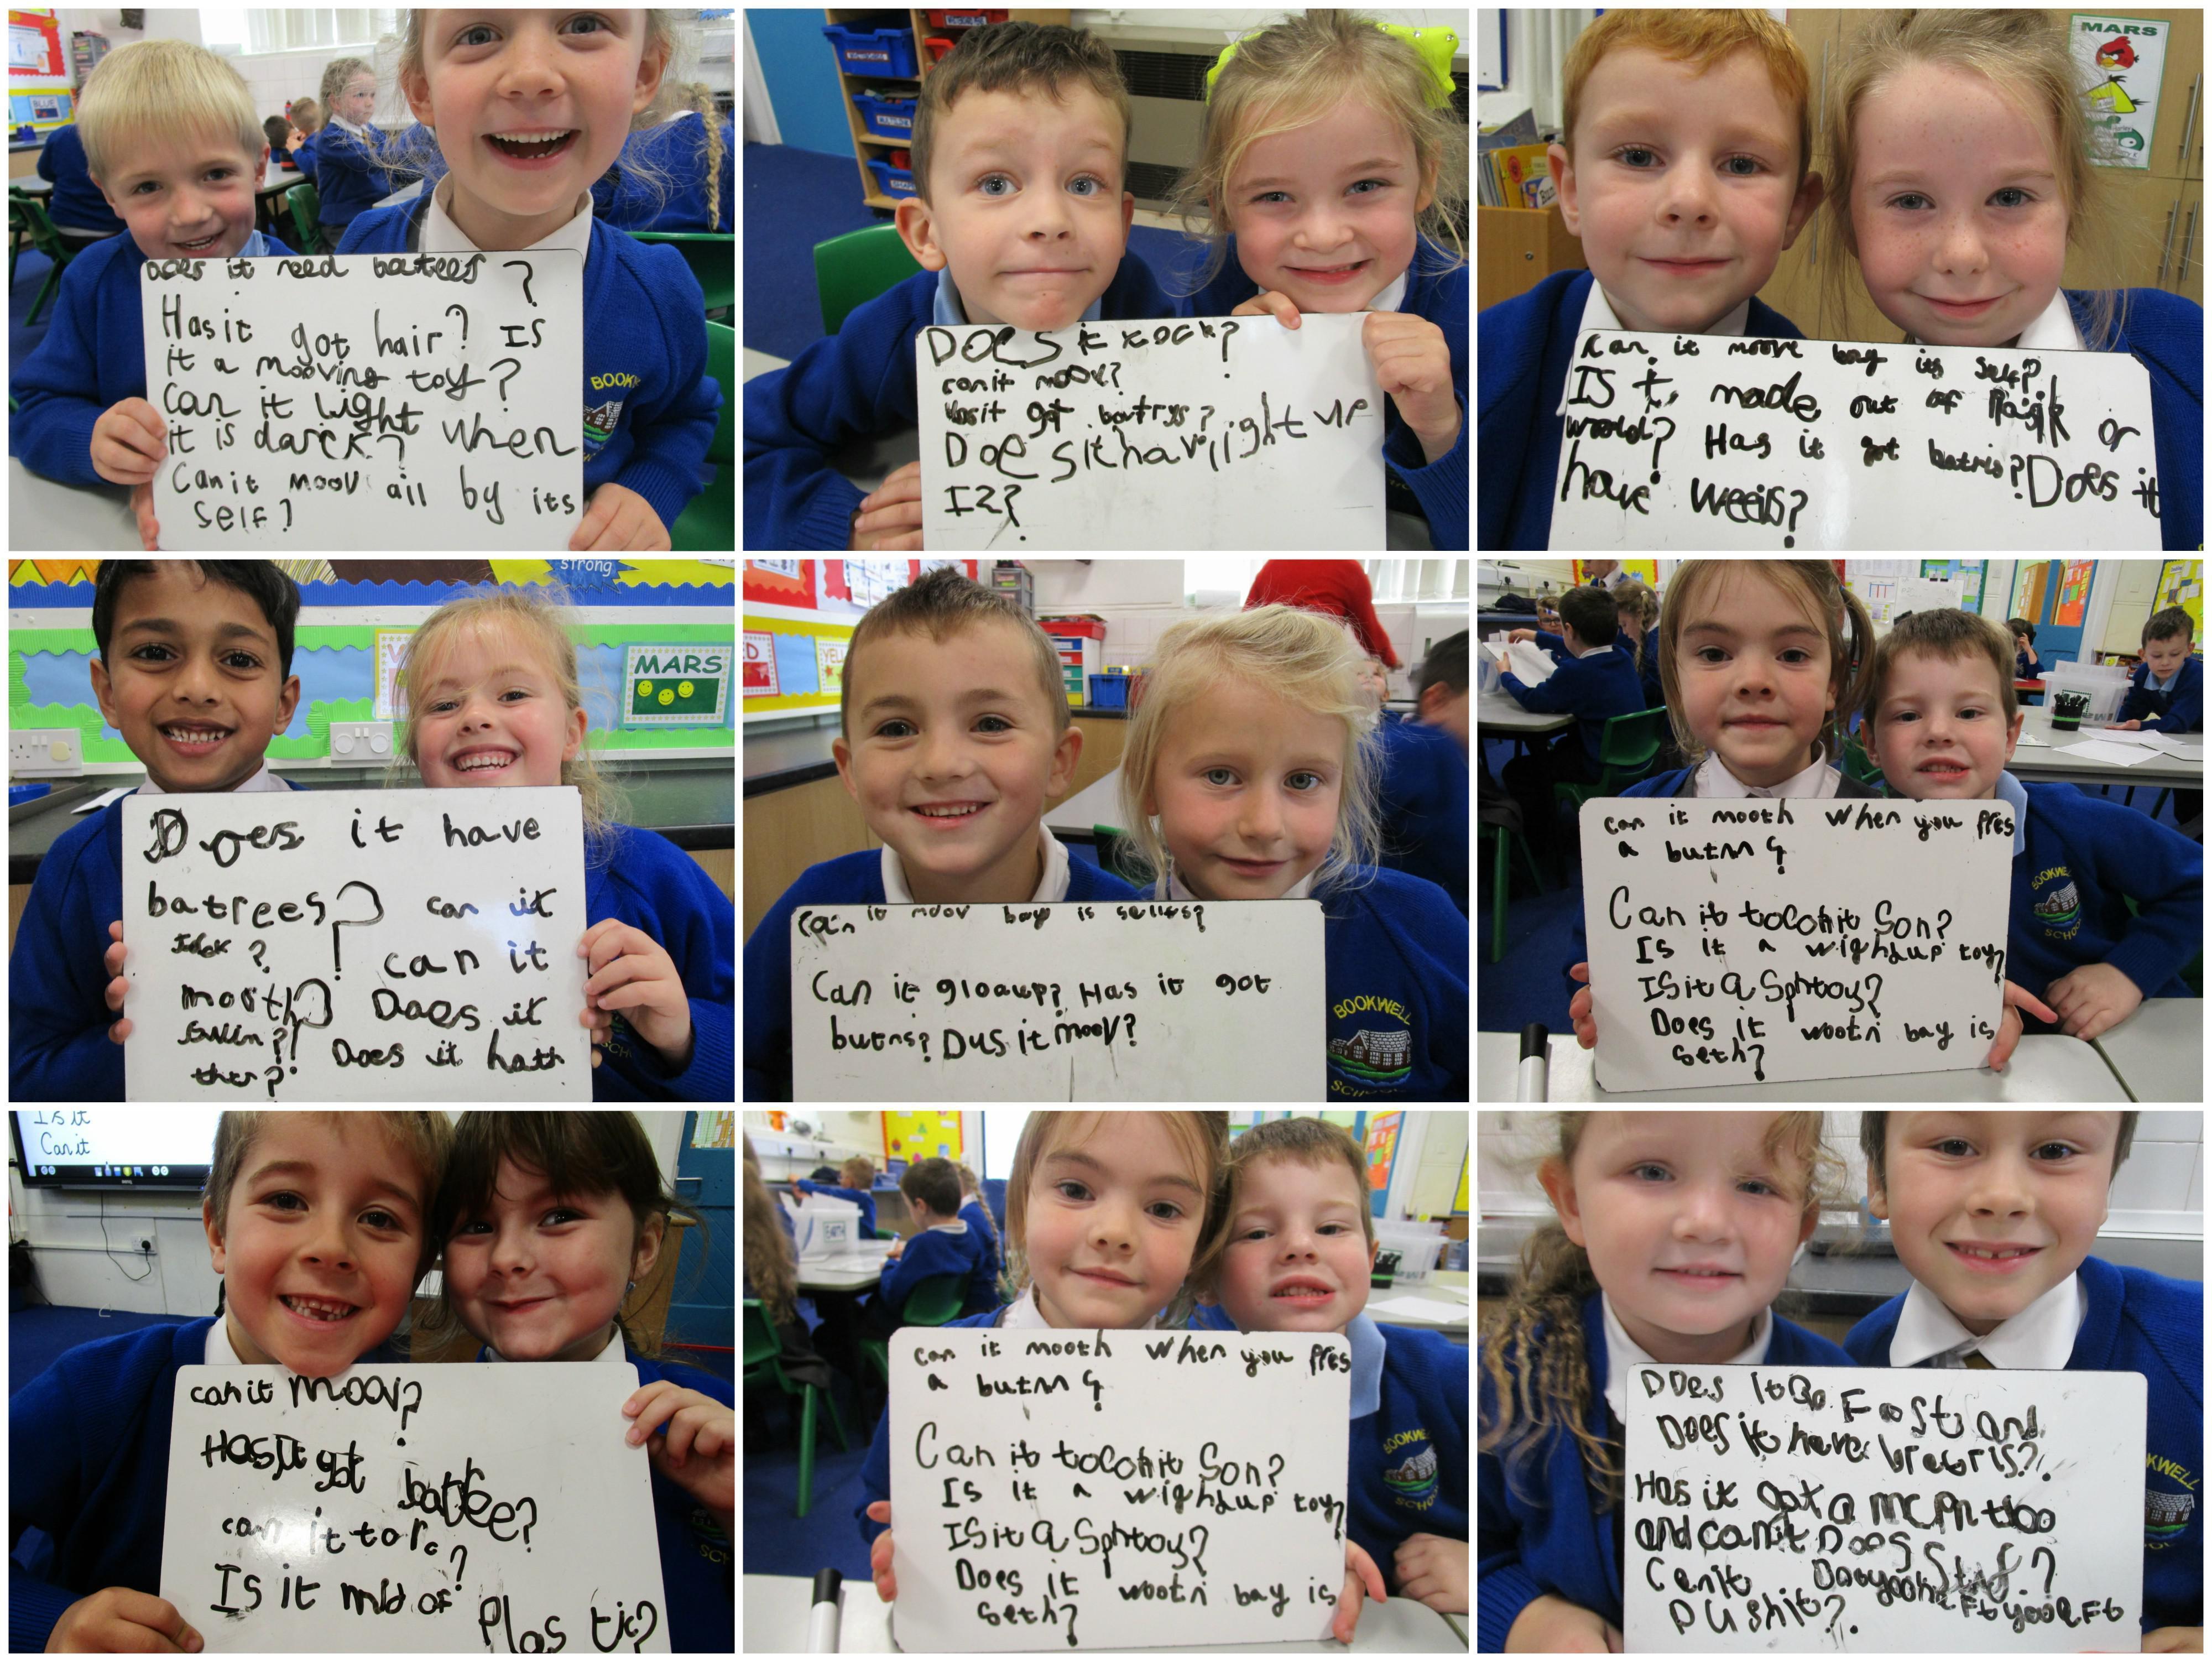 BLUE
Does it need batees ?
Has it got hair? Is
it a mooving toy?
Can it light when
it is darck?
Can it moov all by its
self?
BOOKW
Does it tock?
can it moov?
Has it got batrys?
Does it hav light up
I2?
MARS
Can it moove bay its self?
Is it made out of
woold? Has it got batris? Does it
have weels?
strong
MARS
Does it have
batrees? can it
can it
Does it
Does it hath
ED
YEL
Can it moov bay is selfes?
Can it gloaup? Has it got
butns? Dus it moov?
BOOKWELL
SCHOOL
can it mooth when you pres
a butnn ?
Can it Son?
Is it a wighdup toy?
Is it a toy?
Does it wootn bay is
Seth?
BOOKWE
SCHOOL
Is it
Can it
can it moov?
Has it got batree?
can it torc?
Is it mld of
Plastic?
EARTH
can it mooth when you pres
a butnn ?
Can it Son?
Is it a wighdup toy?
Is it a toy?
Does it wootn bay is
Seth?
BOOKWELL
SCHOO
Does it Go Fast and
Does it have
Has it got a too
and can it Does Stuf?
Can it
Pushit?
KWELL